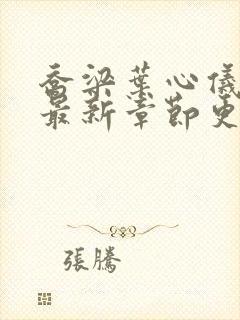 喬梁葉心儀
最新章節更
張騰